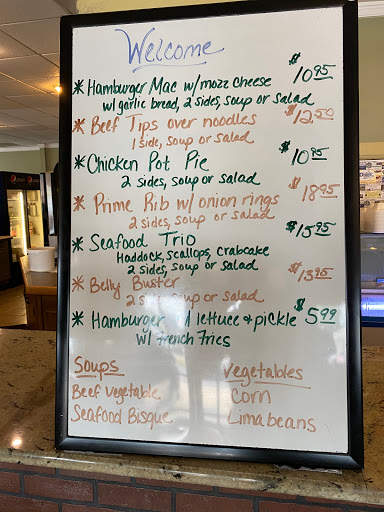 Welcome
* Hamburger Mac w/mozz cheese $10.95
w/ garlic bread, 2 sides, soup or salad
* Beef Tips over noodles $12.50
1 side, soup or salad
* Chicken Pot Pie $10.95
2 sides, soup or salad
* Prime Rib w/ onion rings $18.95
2 sides, soup or salad
* Seafood Trio $15.95
Haddock, scallops, crabcake
2 sides, soup or salad
* Belly Buster $13.95
2 soup or salad
* Hamburger lettuce & pickle $5.99
w/ french fries
Soups
Beef Vegetable
Seafood Bisque
Vegetables
Corn
Lima beans